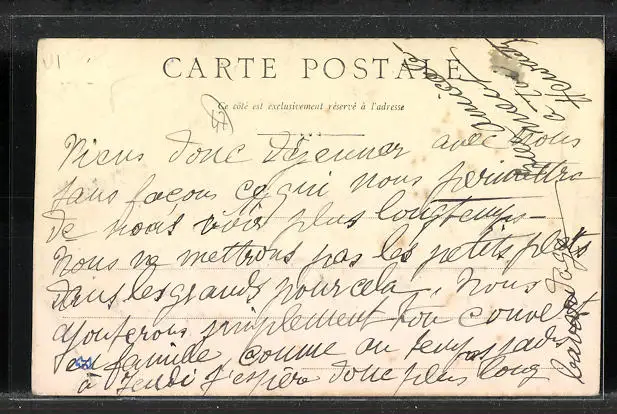 CARTE POSTALE
Ce côté est exclusivement réservé à l'adresse
Viens donc déjeuner avec nous
sans façons ce qui nous permettra
de nous voir plus longtemps -
Nous ne mettrons pas les petits plats
dans les grands pour cela, Nous
ajouterons simplement ton couvert
en famille comme au temps
à Jeudi j'espère donc plus long